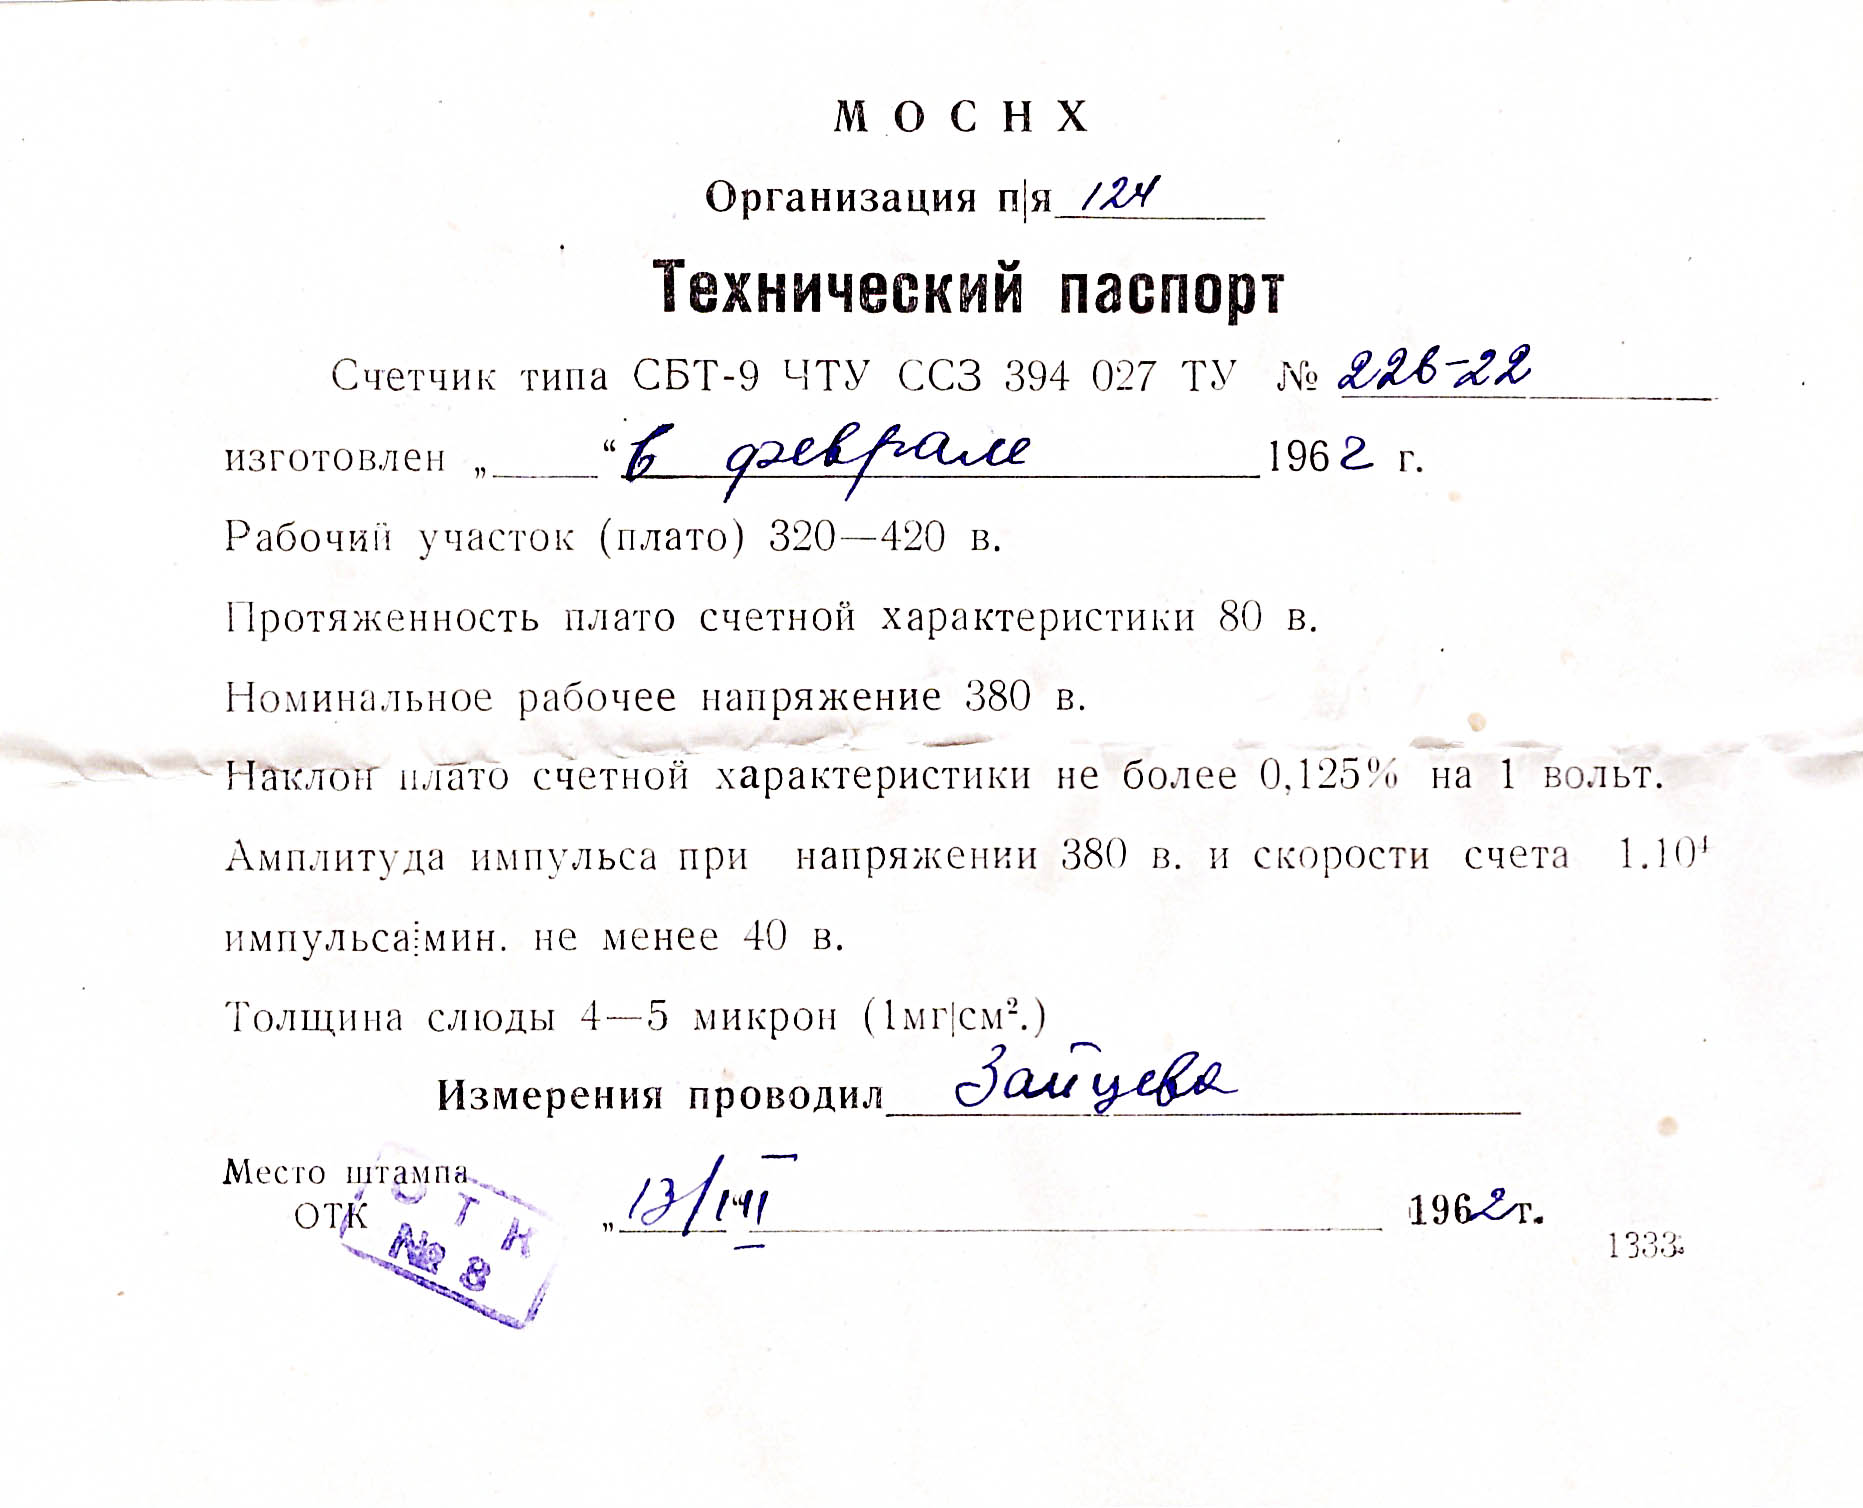 МОСНХ
Организация п|я 124
Технический паспорт
Счетчик типа СБТ-9 ЧТУ ССЗ 394 027 ТУ № 226-22
изготовлен „ “ в феврале 1962 г.
Рабочий участок (плато) 320—420 в.
Протяженность плато счетной характеристики 80 в.
Номинальное рабочее напряжение 380 в.
Наклон плато счетной характеристики не более 0,125% на 1 вольт.
Амплитуда импульса при напряжении 380 в. и скорости счета 1.10⁴
импульса|мин. не менее 40 в.
Толщина слюды 4—5 микрон (1мг|см².)
Измерения проводил Зайцева
Место штампа
ОТК „13/III 1962г.
ОТК
№ 8
1333